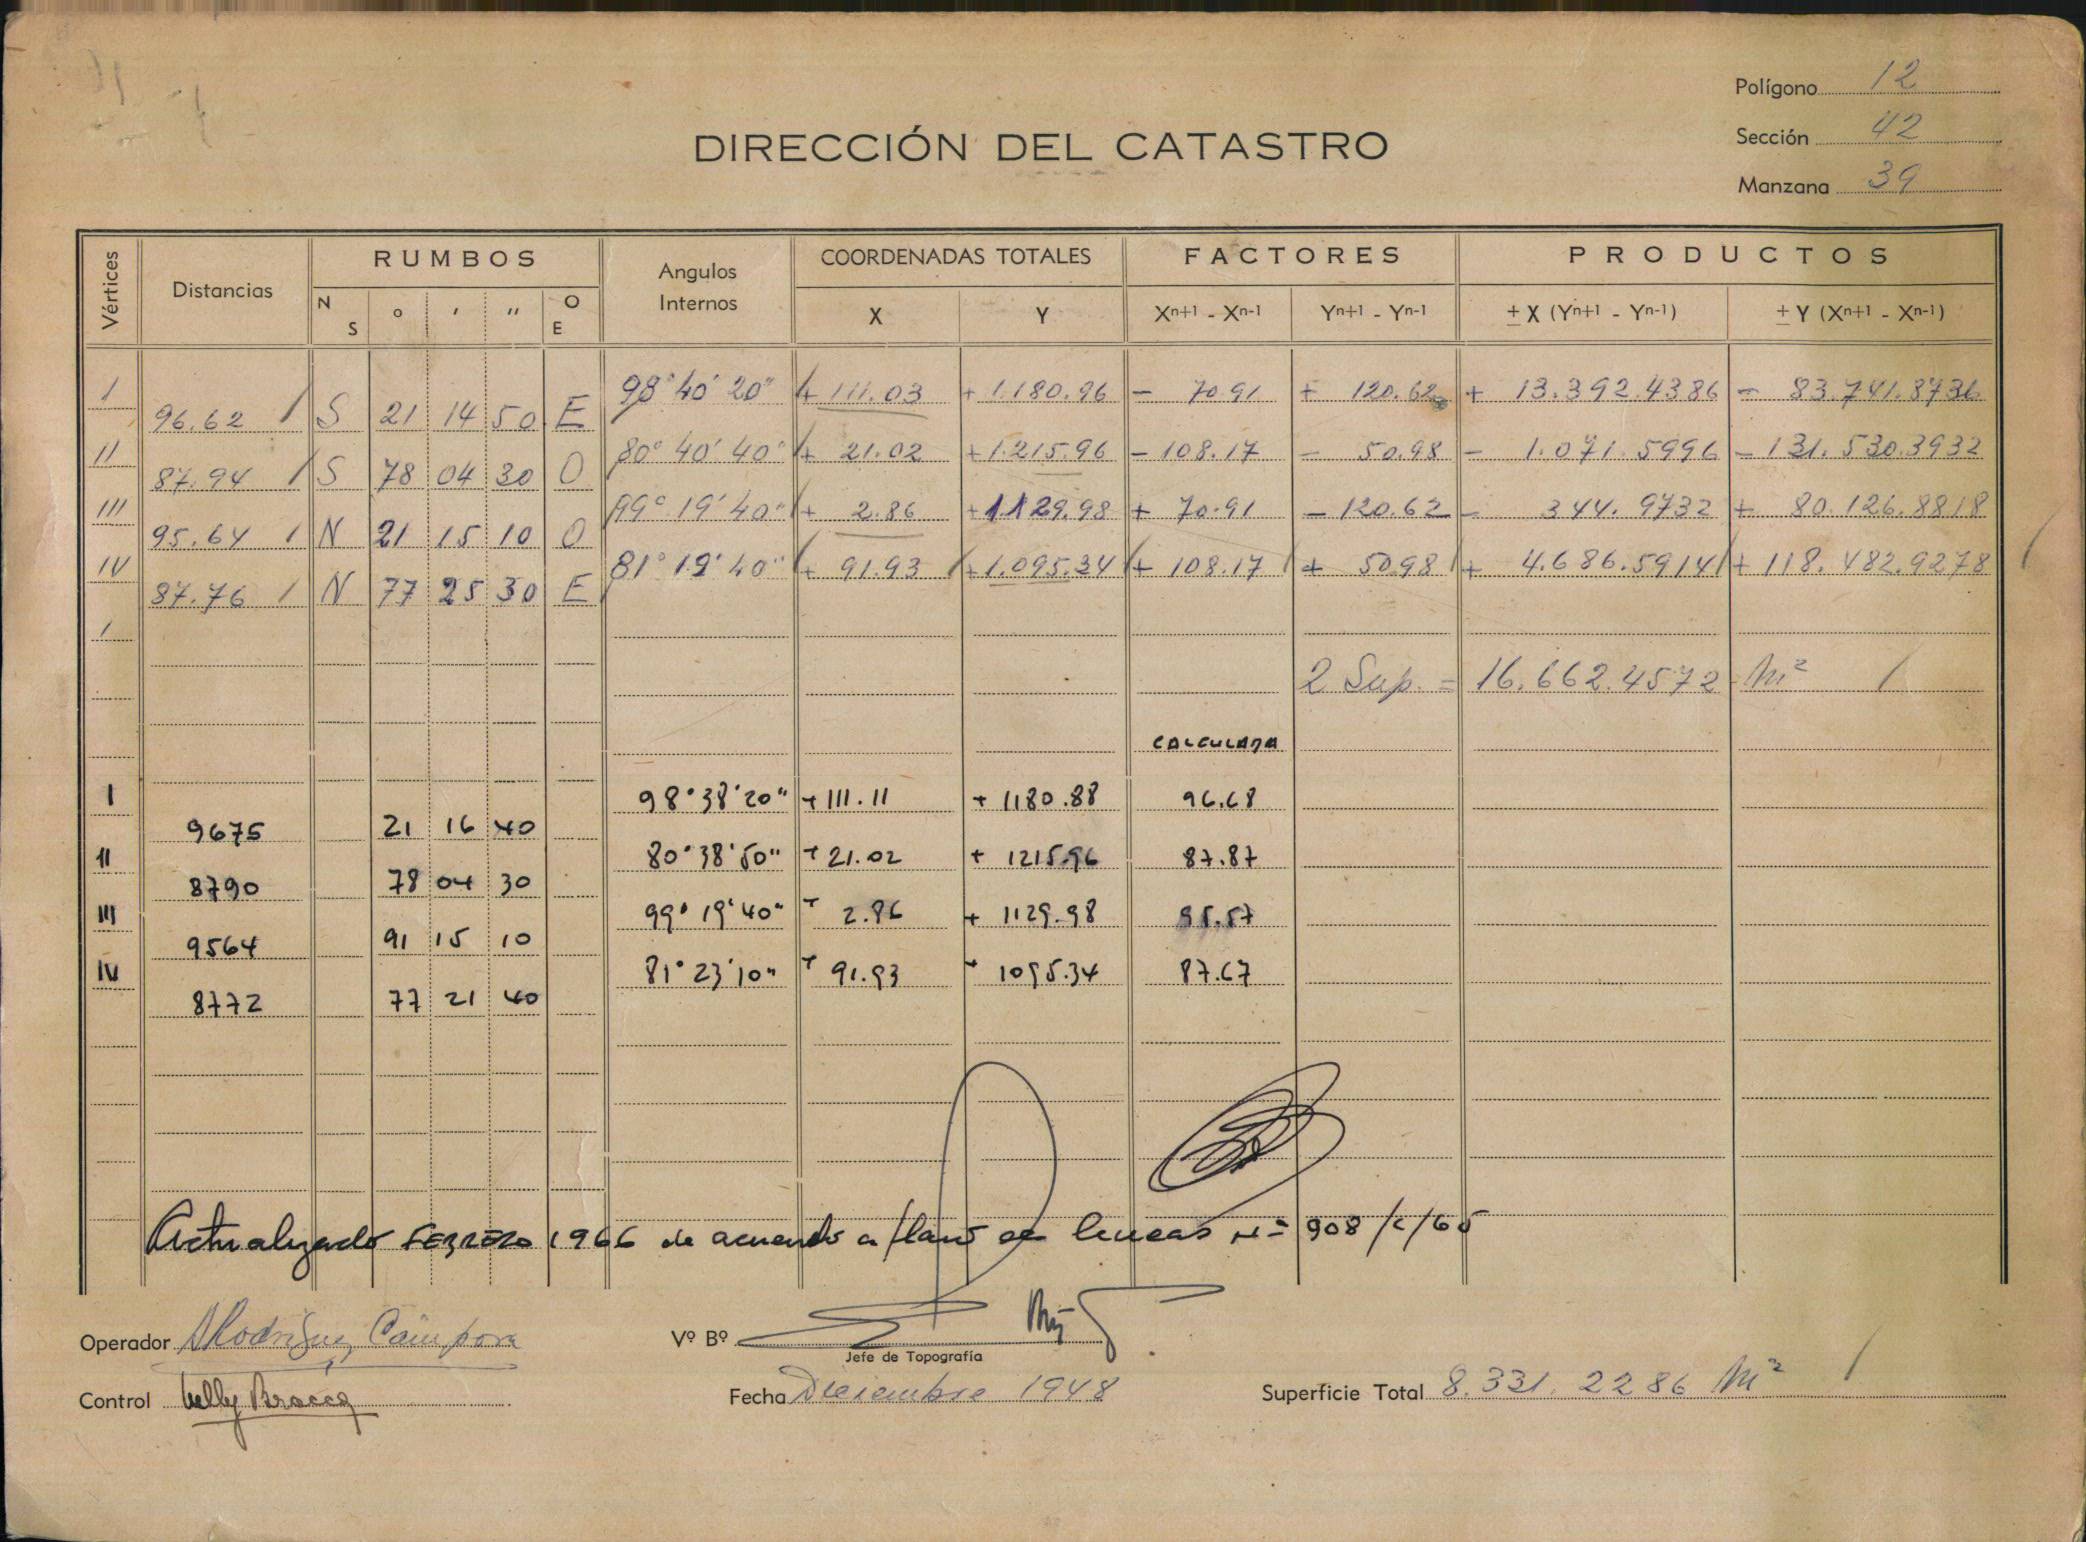 Polígono 12
DIRECCIÓN DEL CATASTRO
Sección 42
Manzana 39
Vértices Distancias RUMBOS Angulos Internos COORDENADAS TOTALES FACTORES PRODUCTOS
N S ° ' '' O E X Y Xn+1 - Xn-1 Yn+1 - Yn-1 ± X (Yn+1 - Yn-1) ± Y (Xn+1 - Xn-1)
I 98°40'20" + 111.03 + 1.180.96 - 70.91 + 120.62 + 13.392.4386 - 83.741.8736
96.62 S 21 14 50 E
II 80°40'40" + 21.02 + 1.215.96 - 108.17 - 50.98 - 1.071.5996 - 131.530.3932
87.94 S 78 04 30 O
III 99°19'40" + 2.86 + 1129.98 + 70.91 - 120.62 - 344.9732 + 80.126.8818
95.64 N 21 15 10 O
IV 81°19'40" + 91.93 + 1.095.34 + 108.17 + 50.98 + 4.686.5914 + 118.482.9278
87.76 N 77 25 30 E
I
2 Sup. = 16.662.4572 m²
CALCULADA
I 98°38'20" + 111.11 + 1180.88 96.68
9675 21 16 40
II 80°38'50" + 21.02 + 1215.96 87.87
8790 78 04 30
III 99°19'40" + 2.86 + 1129.98 95.57
9564 91 15 10
IV 81°23'10" + 91.93 + 1095.34 87.67
8772 77 21 40
Actualizado FEBRERO 1966 de acuerdo a plano de lineas Nº 908/C/65
Operador ARodriguez Campora Vº Bº
Jefe de Topografía
Control Nelly Bracco Fecha Diciembre 1948 Superficie Total 8.331.2286 m²